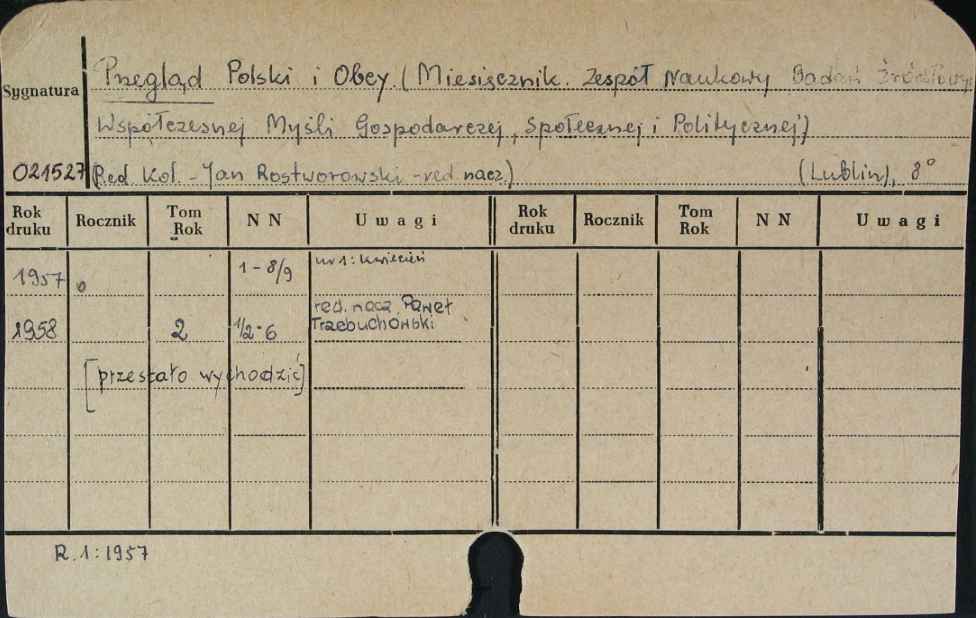 Przegląd Polski i Obcy. (Miesięcznik. Zespół Naukowy Badań Źródłowych
Sygnatura
Współczesnej Myśli Gospodarczej, Społecznej i Politycznej)
021527 (Red Kol. - Jan Rostworowski - red nacz.) (Lublin), 8°
Rok druku Rocznik Tom Rok NN Uwagi Rok druku Rocznik Tom Rok NN Uwagi
1957 1-8/9 nr 1: kwiecień
red. nacz. Paweł
1958 2 1/2-6 Trzebuchowski
[przestało wychodzić]
R.1:1957